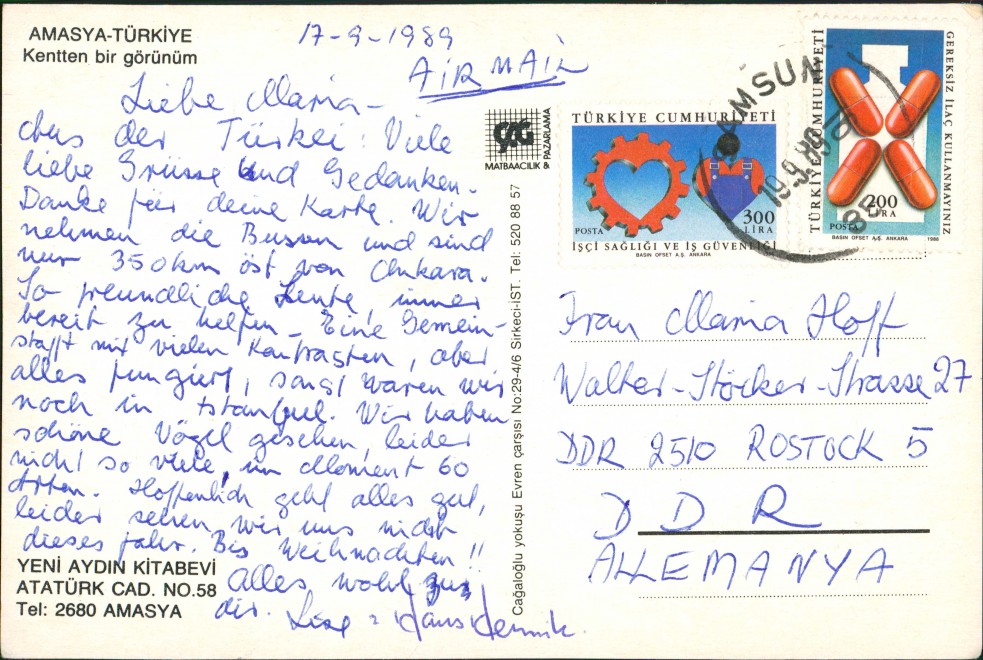 AMASYA-TÜRKİYE
Kentten bir görünüm
17-9-1989
AiR MAIL
Liebe Maria -
Aus der Türkei: Viele
liebe Grüsse und Gedanken.
Danke für deine Karte. Wir
nehmen die Bussen und sind
nur 350 km öst von Ankara.
So freundliche Leute, immer
bereit zu helfen - Eine Gemein-
staft mit vielen Kontrasten, aber
alles fungiert, sonst waren wir
noch in Istanbul. Wir haben
schöne Vögel gesehen, leider
nicht so viele, im Moment 60
Arten. Hoffenlich geht alles gut,
leider sehen wir uns nicht
dieses Jahr. Bis Weihnachten !!
Alles wohl
dir. Lise : Hans Hennik.
YENİ AYDIN KİTABEVİ
ATATÜRK CAD. NO.58
Tel: 2680 AMASYA
ÇAG
MATBAACILIK & PAZARLAMA
Cağaloğlu yokuşu Evren çarşısı No:29-4/6 Sirkeci-İST. Tel: 520 88 57
TÜRKİYE CUMHURİYETİ
POSTA
300
LİRA
İŞÇİ SAĞLIĞI VE İŞ GÜVENLİĞİ
BASIN OFSET A.Ş. ANKARA
TÜRKİYE CUMHURİYETİ
GEREKSİZ İLAÇ KULLANMAYINIZ
200
LİRA
POSTA
BASIN OFSET A.Ş. ANKARA 1988
SAMSUN
19.9.89
Frau Maria Hoff
Walter-Stöcker-Strasse 27
DDR 2510 ROSTOCK 5
DDR
ALLEMANYA